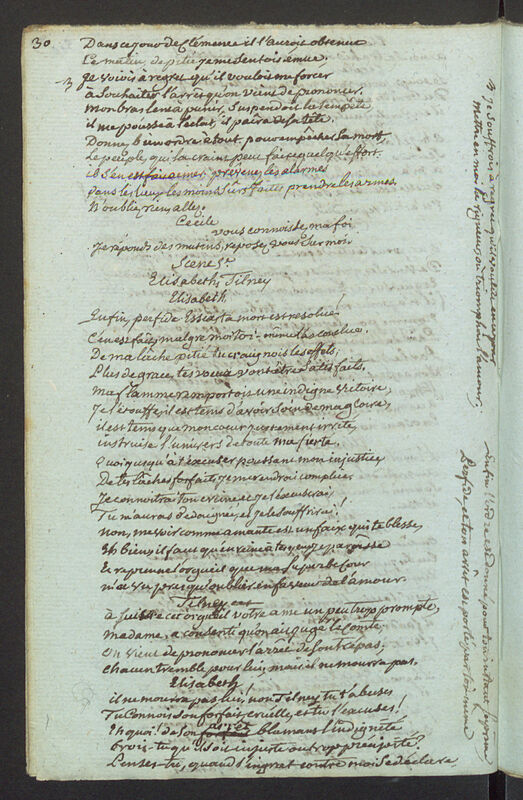 30
Dans ce jour de clémence il l'auroit obtenue
Le matin, de pitié je me sentois emue.
3 Je vois à regret qu'il vouloit me forcer
à Souhaiter l'arret qu'on vient de prononcer.
Mon bras lent à punir, Suspendoit la tempête
il me pousse à l'éclat, il paira de sa tête.
Donnez bien ordre à tout, pour empêcher sa mort,
Le peuple qui la craint peut faire quelqu'effort.
prévenez les alarmes
dans les lieux les moins Surs faites prendre les armes
N'oubliez rien, allez.
Cecile
vous connoissez ma foi
Je réponds des mutins, reposez vous sur moi
Scene 5e
Elisabeth, Tilney
Elisabeth
Enfin, perfide Essex ta mort est resolue
C'en est fait, malgré moi toi-même l'as conclue.
De ma lache pitié tu craignois les effets,
Plus de grace, tes voeux vont être satisfaits,
Ma flamme emportoit une indigne victoire,
Je l'étouffe, il est tems d'avoir soin de ma gloire,
il est tems que mon coeur justement irrité,
instruise l'univers de toute ma fierté.
Quoi jusqu'à t'excuser poussant mon injustice
De tes lâches forfaits, je me rendrois complice,
Je connoitrai ton crime et je t'excusrai,
Tu m'auras dedaignée, et je le souffrirai!
non, me voir comme amante est un faux qui te blesse,
Eh bien, il faut qu'en reine
Et reprenne l'orgueil que
n'a vu presqu'oublier en faveur de l'amour.
Tilney
à Suivre ce orgueil votre ame un peu trop prompte,
madame, a consenti qu'on ait jugé le Comte,
On vient de prononcer l'arret de son trépas,
chacun tremble pour lui, mais il ne mourra pas.
Elisabeth
il ne mourra pas lui, non Tilney tu t'abuses
Tu connois son forfait, cruelle, et tu l'excuses!
Eh quoi! de son arret blamant l'indignité
crois-tu qu'il soit injuste ou trop précipité?
Penses-tu, quand l'ingrat contre moi se déclare,
3 Je souffrois à regret qu'il voulut
mettre en moi la rigueur, où triomphoit l'amour;
Perfide, et ton arret est porté par toi-même